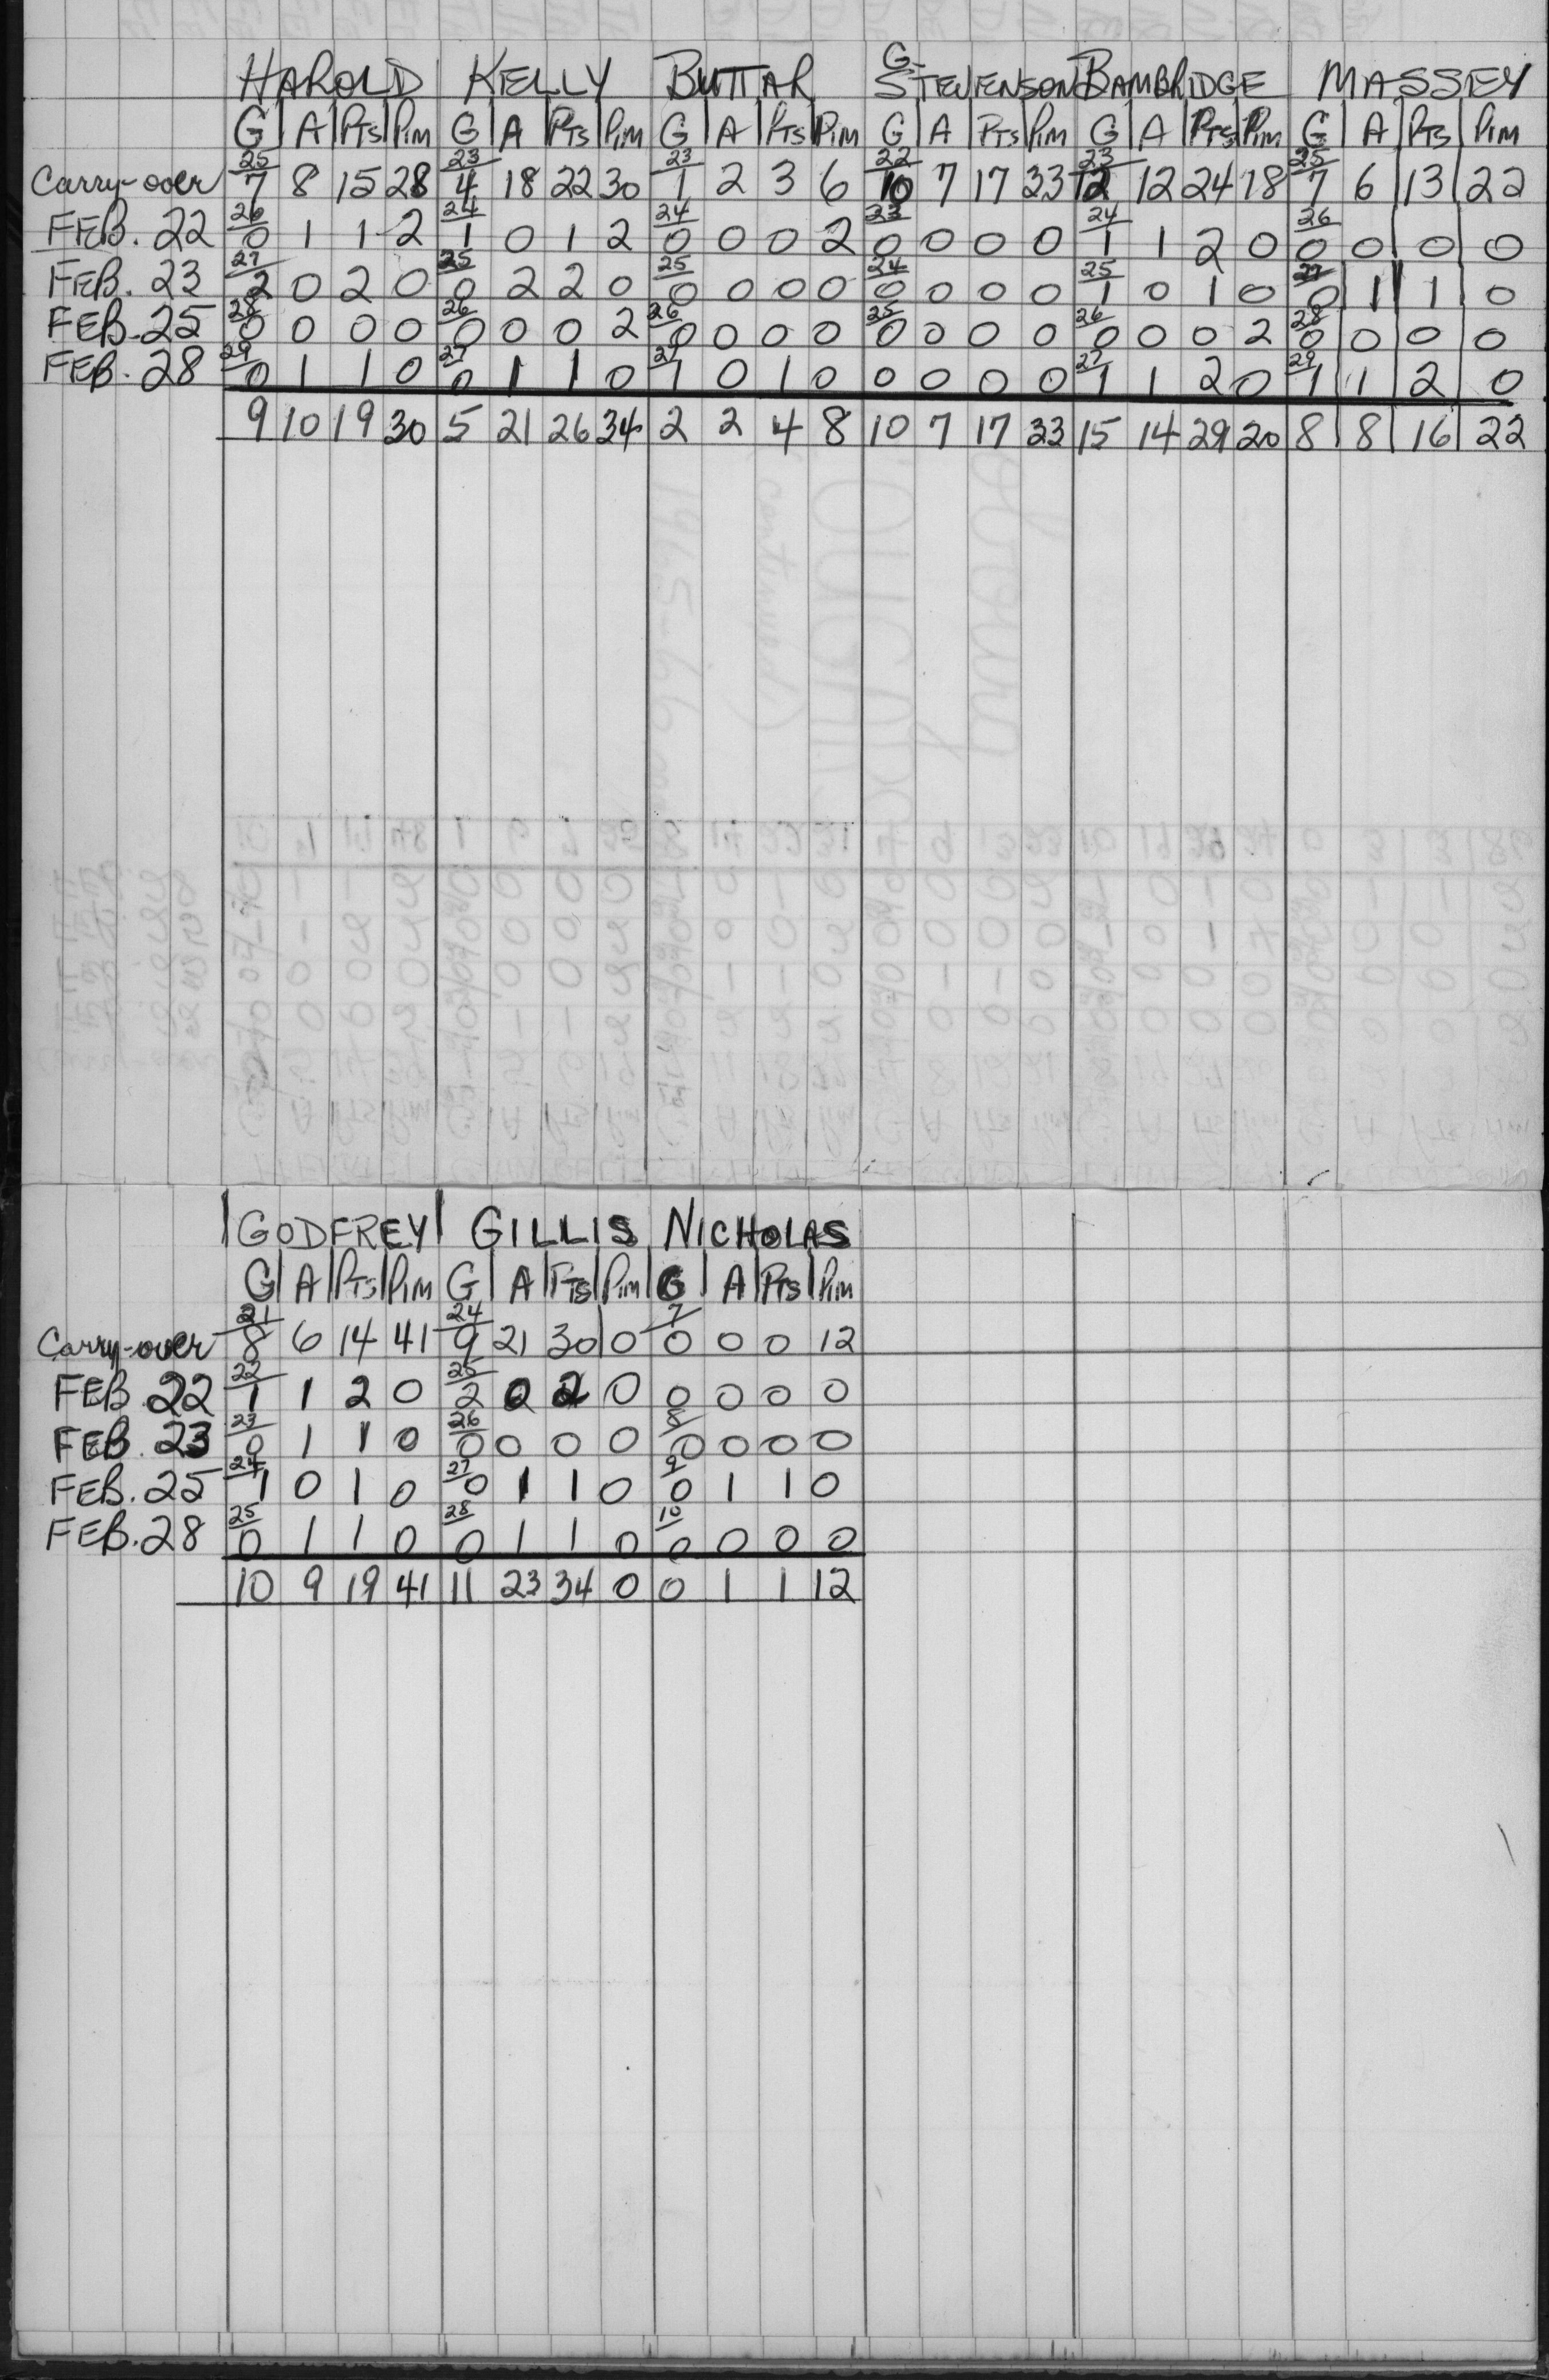 HAROLD KELLY BUTTAR G. STEVENSON BAMBRIDGE MASSEY
G A PTS PIM G A PTS PIM G A PTS PIM G A PTS PIM G A PTS PIM G A PTS PIM
25 23 23 22 23 25
Carry-over 7 8 15 28 4 18 22 30 1 2 3 6 10 7 17 33 12 12 24 18 7 6 13 22
26 24 24 23 24 26
FEB. 22 0 1 1 2 1 0 1 2 0 0 0 2 0 0 0 0 1 1 2 0 0 0 0 0
27 25 25 24 25 27
FEB. 23 2 0 2 0 0 2 2 0 0 0 0 0 0 0 0 0 1 0 1 0 0 1 1 0
28 26 26 25 26 28
FEB. 25 0 0 0 0 0 0 0 2 0 0 0 0 0 0 0 0 0 0 0 2 0 0 0 0
29 27 27 27 29
FEB. 28 0 1 1 0 0 1 1 0 1 0 1 0 0 0 0 0 1 1 2 0 1 1 2 0
9 10 19 30 5 21 26 34 2 2 4 8 10 7 17 33 15 14 29 20 8 8 16 22
GODFREY GILLIS NICHOLAS
G A PTS PIM G A PTS PIM G A PTS PIM
21 24 7
Carry-over 8 6 14 41 9 21 30 0 0 0 0 12
22 25
FEB. 22 1 1 2 0 2 0 2 0 0 0 0 0
23 26 8
FEB. 23 0 1 1 0 0 0 0 0 0 0 0 0
24 27 9
FEB. 25 1 0 1 0 0 1 1 0 0 1 1 0
25 28 10
FEB. 28 0 1 1 0 0 1 1 0 0 0 0 0
10 9 19 41 11 23 34 0 0 1 1 12